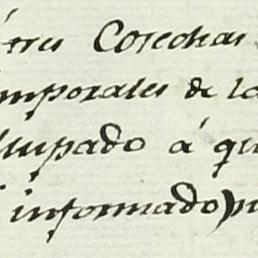 tres Cosechas
mporales de la
llupado á qu
informado